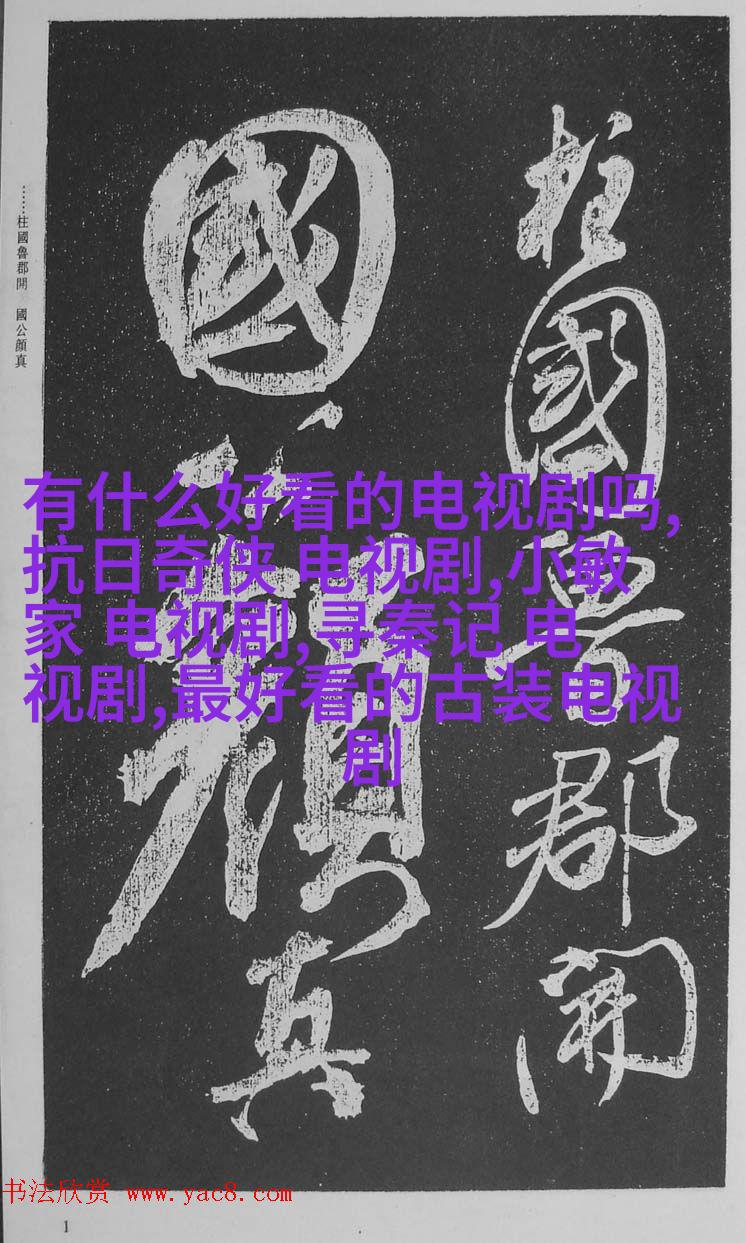 柱國魯郡開
國公顔真
……柱國魯郡開　國公顔真
有什么好看的电视剧吗,
抗日奇侠 电视剧,小敏
家 电视剧,寻秦记 电
视剧,最好看的古装电视
剧
书法欣赏 www.yac8.com
1